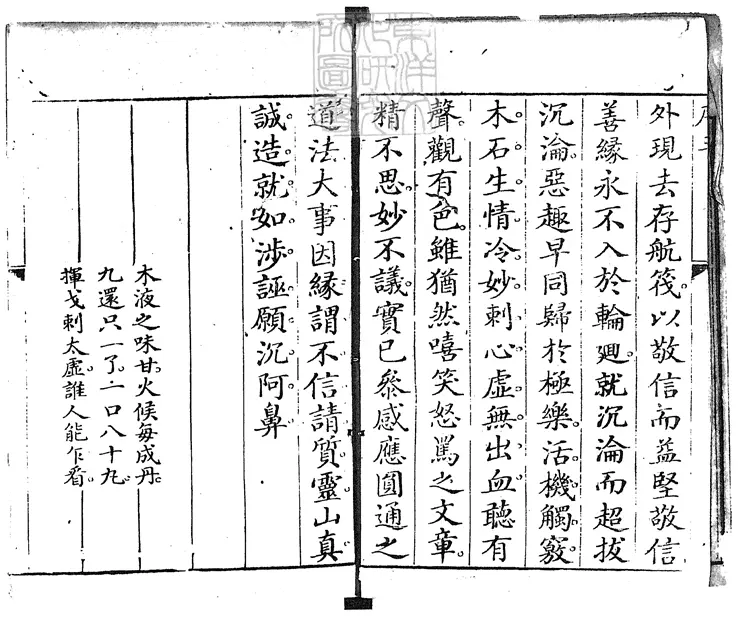 外現去存航筏。以敬信而益堅敬信
善緣永不入於輪廻。就沉淪而超拔
沉淪。惡趣早同歸於極樂。活機觸竅
木石生情。冷妙刺心虛無出血聽有
聲。觀有色。雖猶然嘻笑怒罵之文章。
精不思。妙不議。實已叅感應圓通之
道法大事因緣。謂不信請質靈山真
誠。造就如涉誣。願沉阿鼻
木液之味甘。火候每成丹。
九還只一了。一口八十九。
揮戈刺太虛。誰人能乍看。